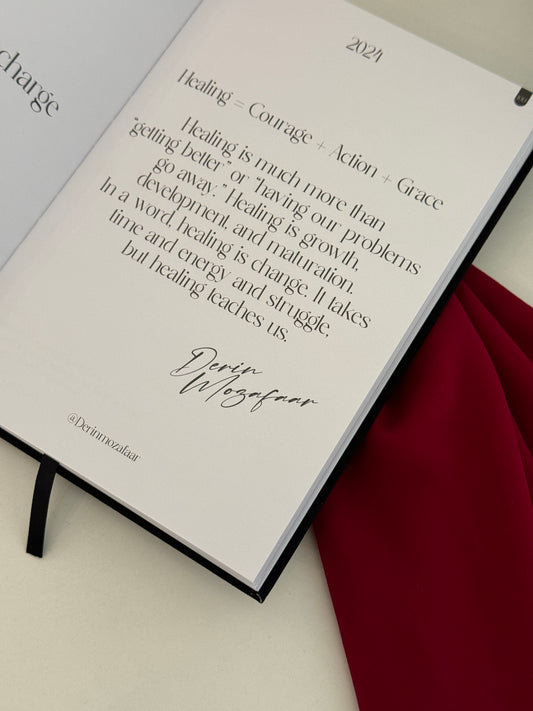 charge
2024
Healing = Courage + Action + Grace
Healing is much more than
"getting better" or "having our problems
go away." Healing is growth,
development, and maturation.
In a word, healing is change. It takes
time and energy and struggle,
but healing teaches us.
Derin
Mozafaar
@Derinmozafaar